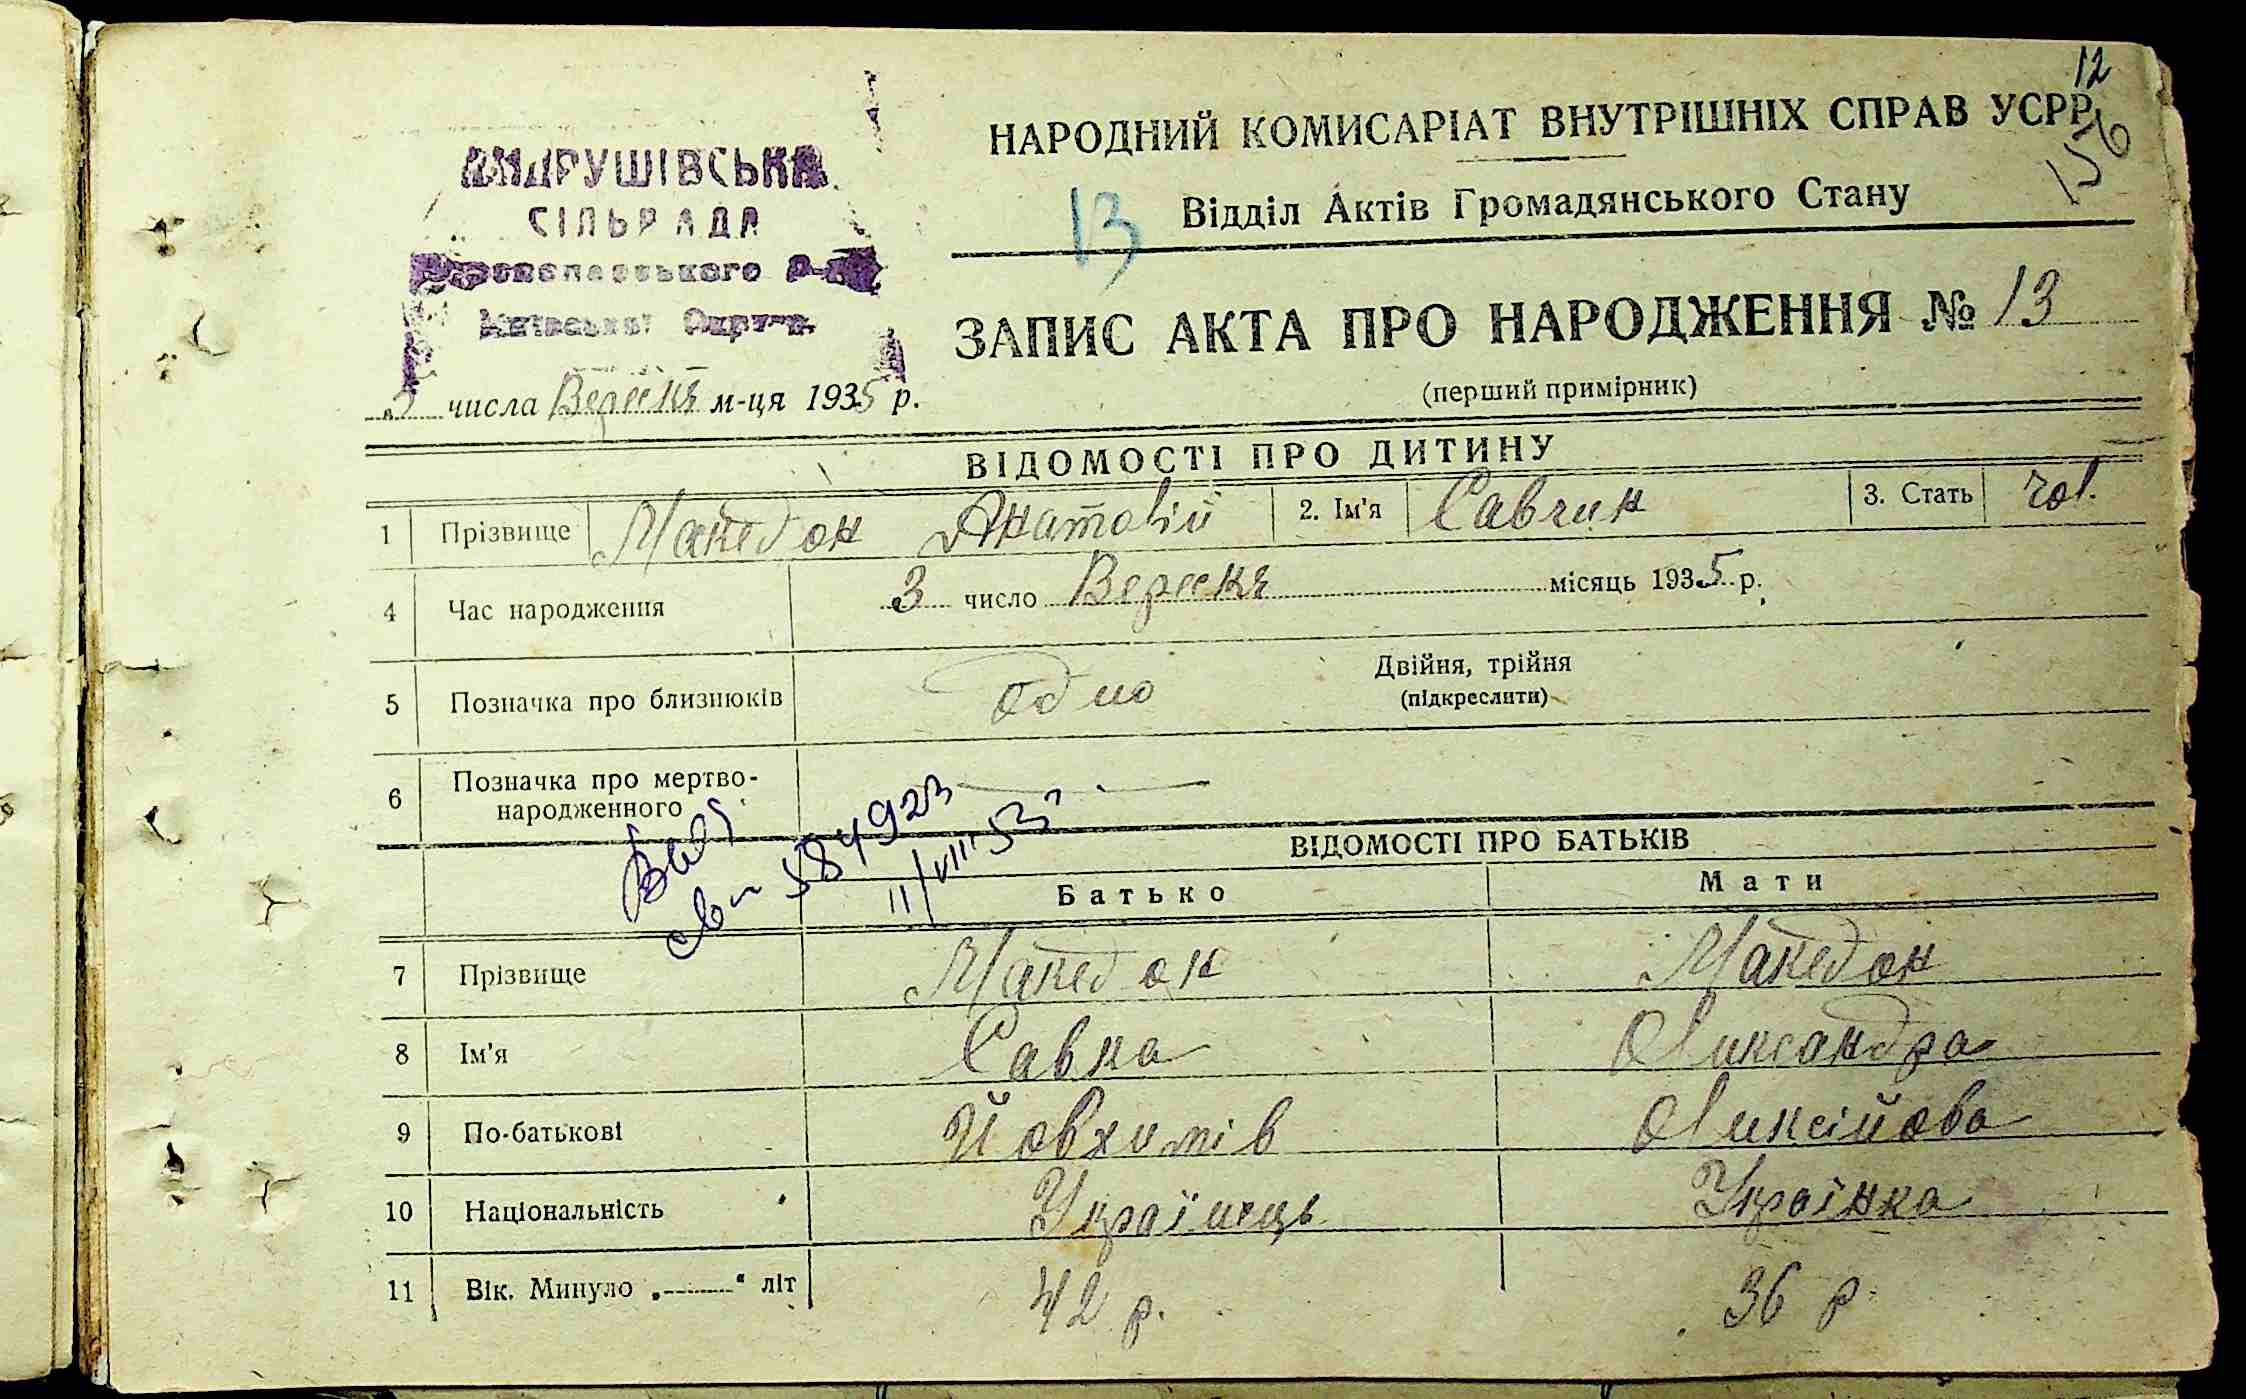 12
НАРОДНИЙ КОМИСАРІАТ ВНУТРІШНІХ СПРАВ УСРР
156
АНДРУШІВСЬКА
СІЛЬРАДА
Київської Округи
13
Відділ Актів Громадянського Стану
ЗАПИС АКТА ПРО НАРОДЖЕННЯ № 13
(перший примірник)
"5 числа Вересня м-ця 1935 р.
ВІДОМОСТІ ПРО ДИТИНУ
1 Прізвище Македон Анатолій 2. Ім'я Савчин 3. Стать чол.
4 Час народження 3 число Вересня місяць 1935 р.
5 Позначка про близнюків одно Двійня, трійня
(підкреслити)
6 Позначка про мертво-
народженного —
ВІДОМОСТІ ПРО БАТЬКІВ
св 584923
11/VIII 53
Батько Мати
7 Прізвище Македон Македон
8 Ім'я Савка Оликсандра
9 По-батькові Йовхимів Оликсійова
10 Національність Українець Українка
11 Вік. Минуло „ “ літ 42 р. 36 р.